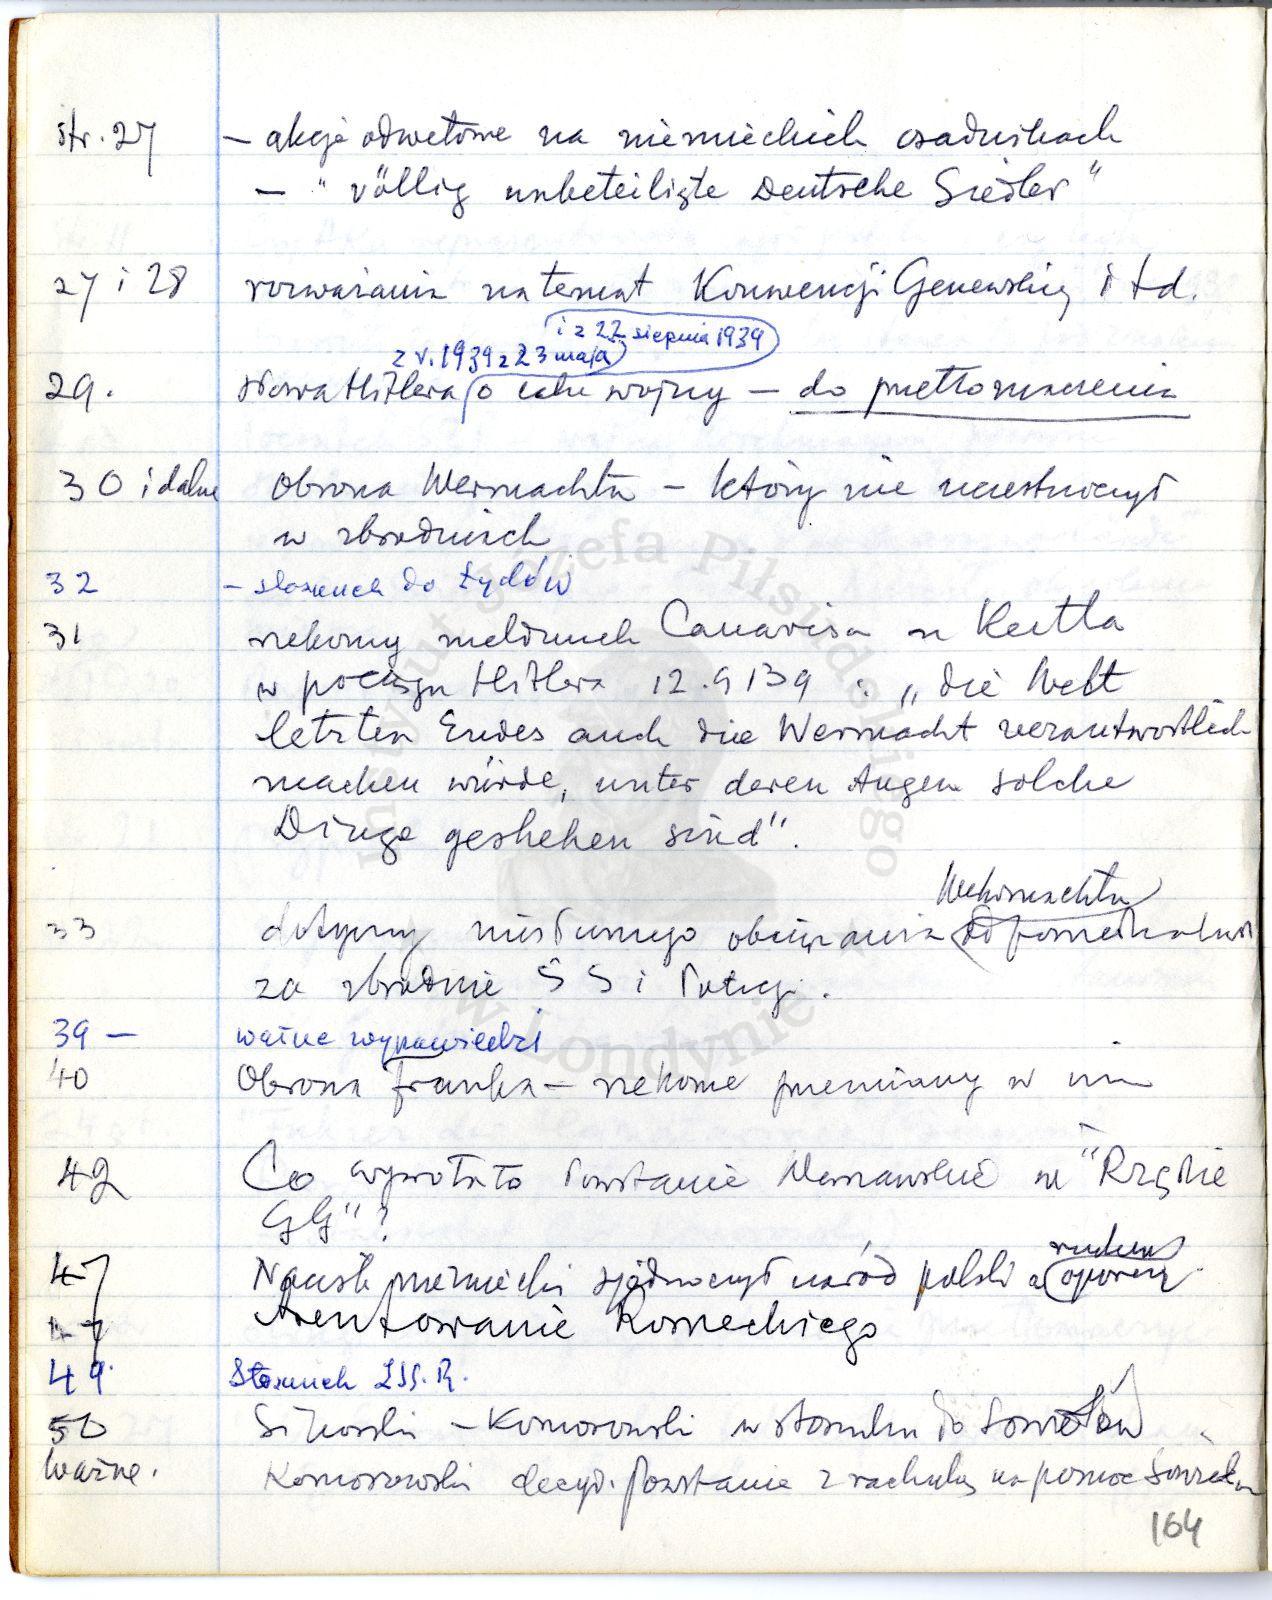 str. 27 – akcje odwetowe na niemieckich osadnikach
– "völlig unbeteiligte Deutsche Siedler"
27 i 28 rozważania na temat Konwencji Genewskiej i td.
i z 22 sierpnia 1939
z v. 1939 z 23 maja
29. słowa Hitlera o celu wojny – do przetłomaczenia
30 i dalne Obrona Wermachtu – który nie uczestniczył
w zbrodniach
32 – stosunek do Żydów
31 rzekomy meldunek Canarisa u Keitla
w pociągu Hitlera 12.9 139 : „die Welt
letzten Endes auch die Wermacht verantwortlich
machen würde, unter deren Augen solche
Dinge geshehen sind".
Wehrmachtu
33 dotyczy niesłusznego obciążania odpowiedzialnoś
za zbrodnie SS i Policji.
39 – ważne wypowiedzi
40 Obrona Franka – rzekome przemiany w nim
42 Co wywołało Powstanie Warszawskie w "Rządzie
GG"?
ruchem
47 Nacisk niemiecki zjednoczył naród polski z oporem
47 Aresztowanie Roweckiego
49. Stosunek ZSS.R.
50 Sikorski – Komorowski w stosunku do Sowietów
Ważne. Komorowski decyd. Powstanie z rachubą na pomoc Sowietów
164
Instytut Józefa Piłsudskiego
w Londynie